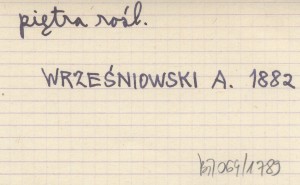 piętra rośl.
WRZEŚNIOWSKI A. 1882
b7/064/1789